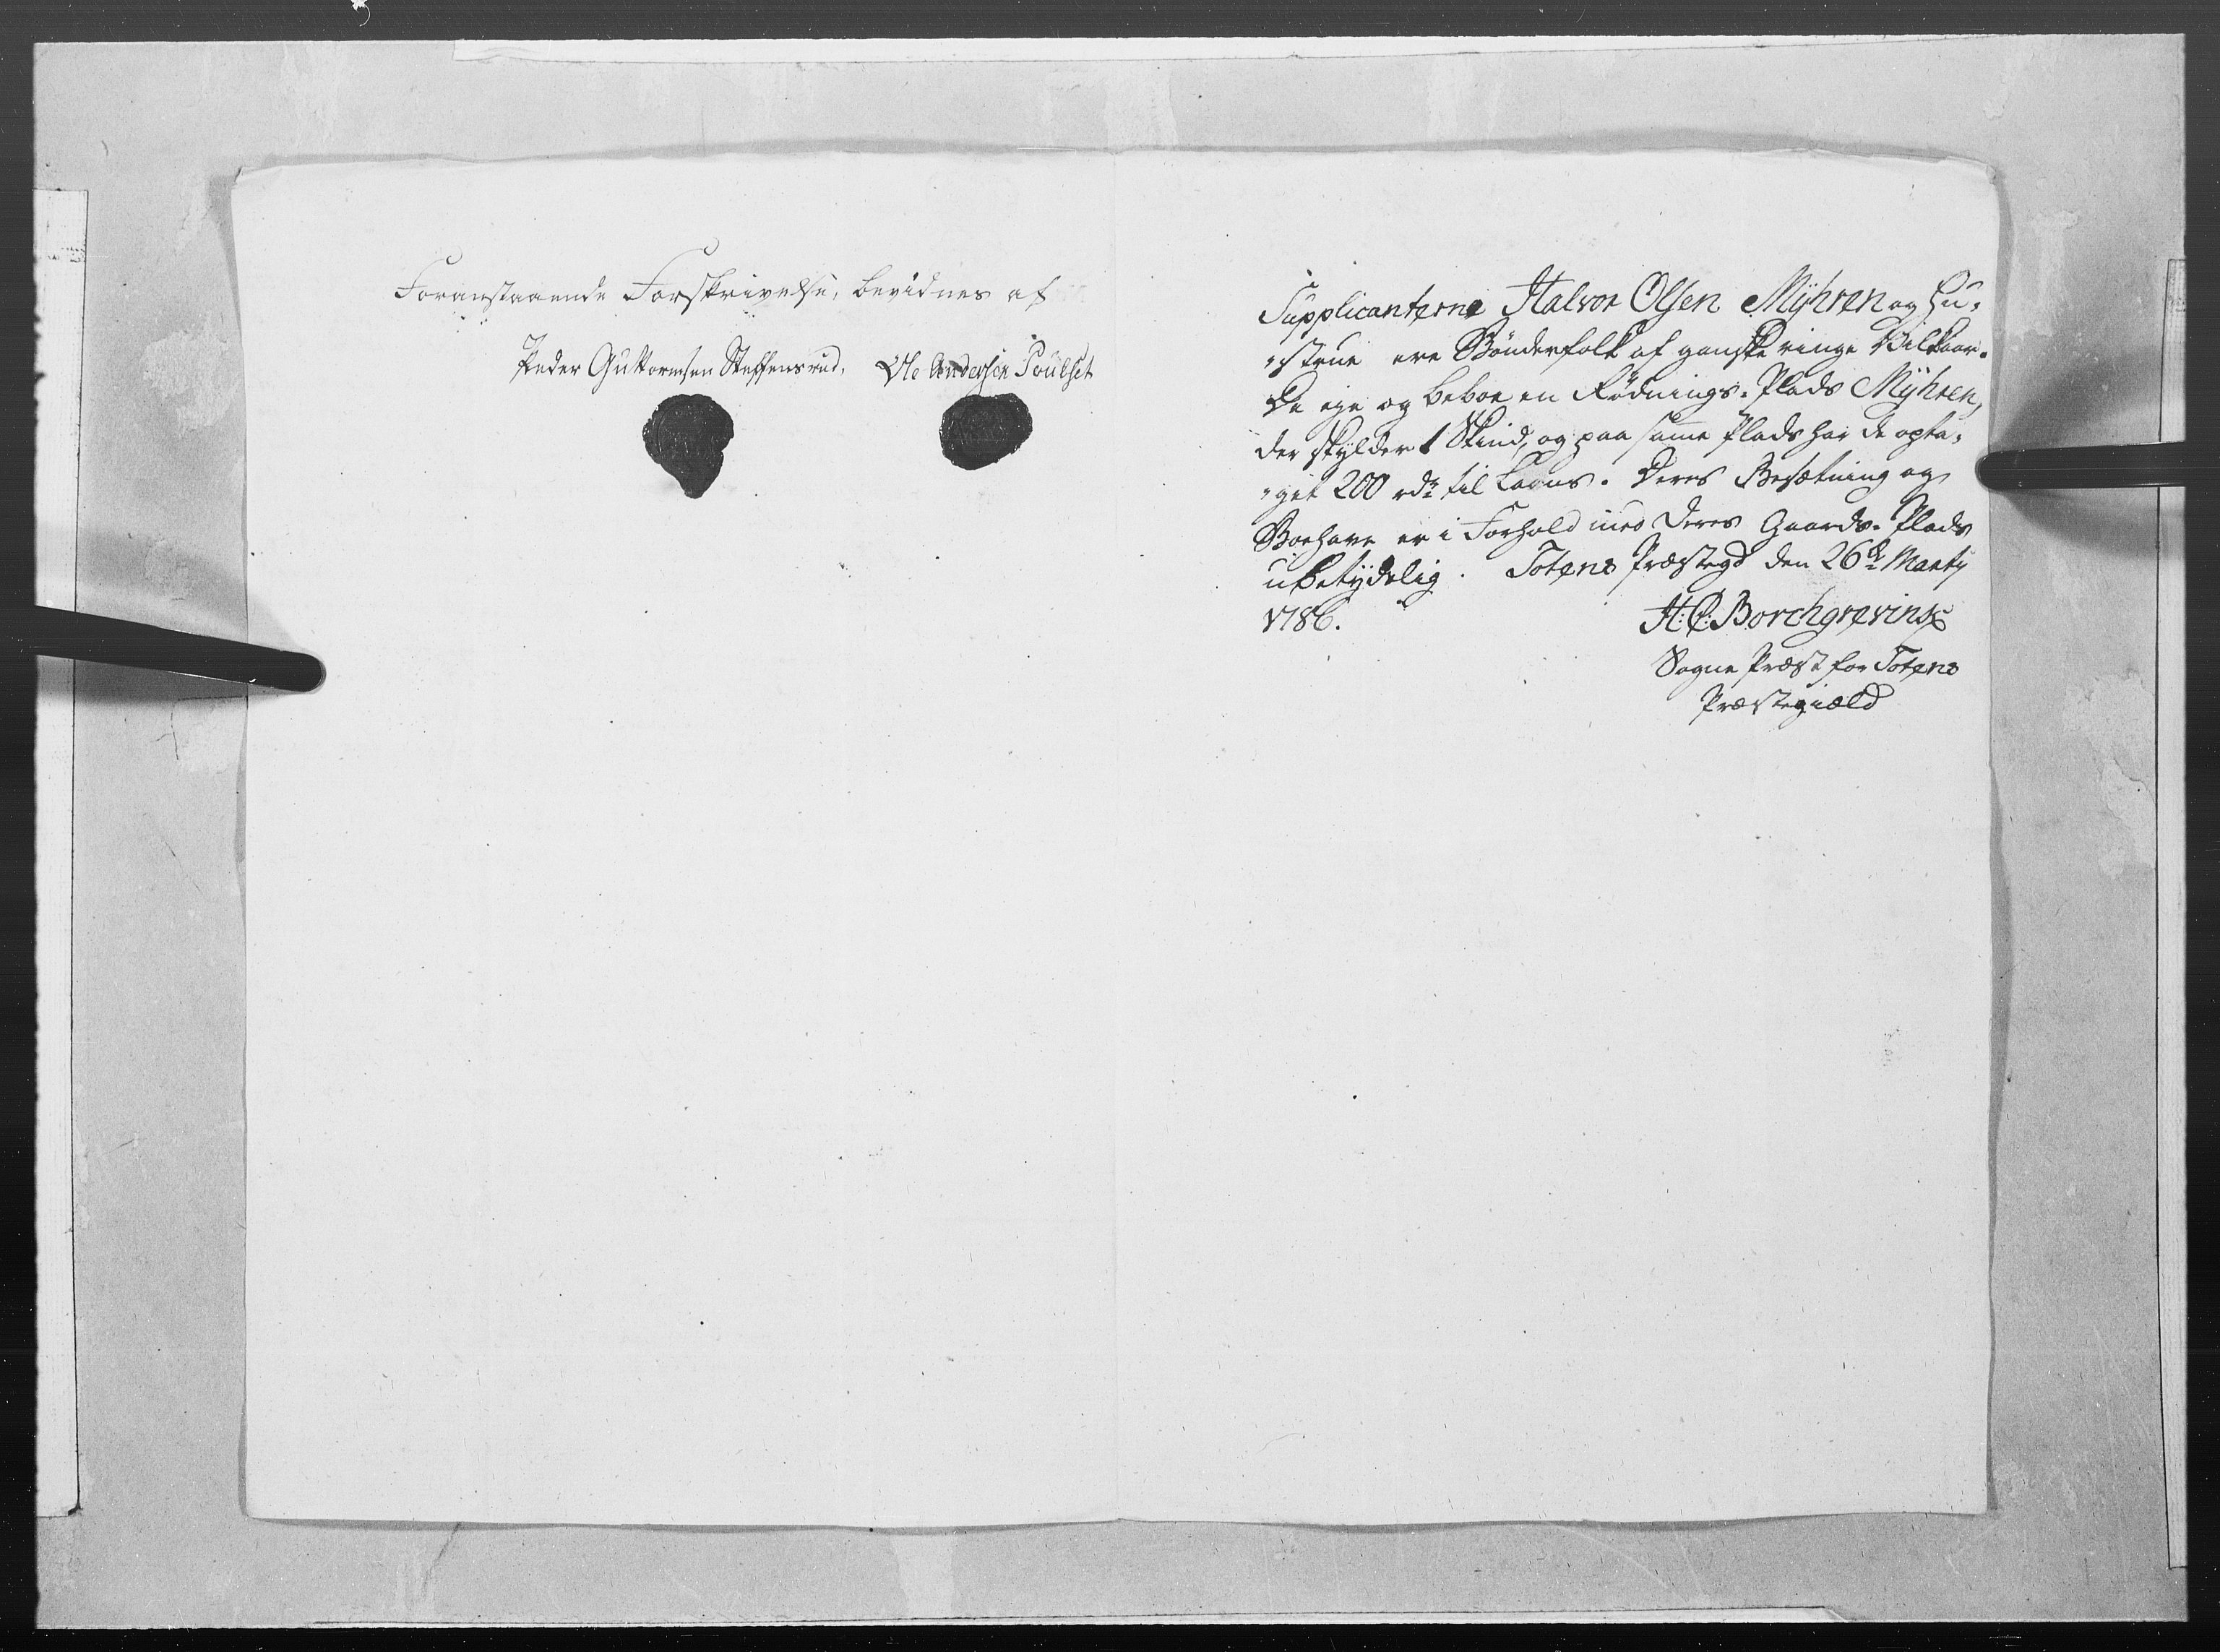 Foranstaaende Forskrivelse, bevidnes af
Peder Guttormsen Steffensrud. Ole Andersen Poulset
Supplicanterne Halvor Olsen Mÿhren og Hu-
-strue ere Bønderfolk af ganske ringe Vilkaar.
De eje og beboe en Rødnings-Plads Mÿhren,
der skylder 1 Skind, og paa samme Plads har de opta-
-get 200 rdr til Laans. Deres Besætning og
Boehave er i Forhold med deres Gaards-Plads
ubetÿdelig. Totens Præstegd den 26de Martÿ
1786.
H: C: Borchgrevink
Sogne Præst for Totens
Præstegiæld